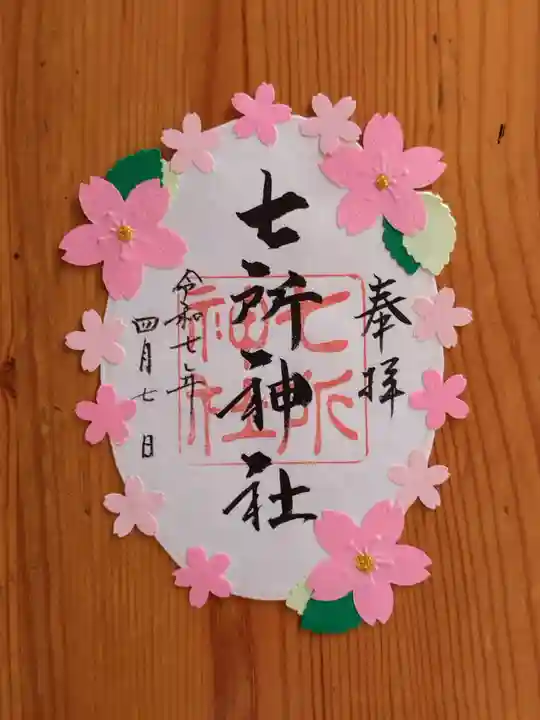 奉拝
七所神社
七所
神社
令和七年
四月七日